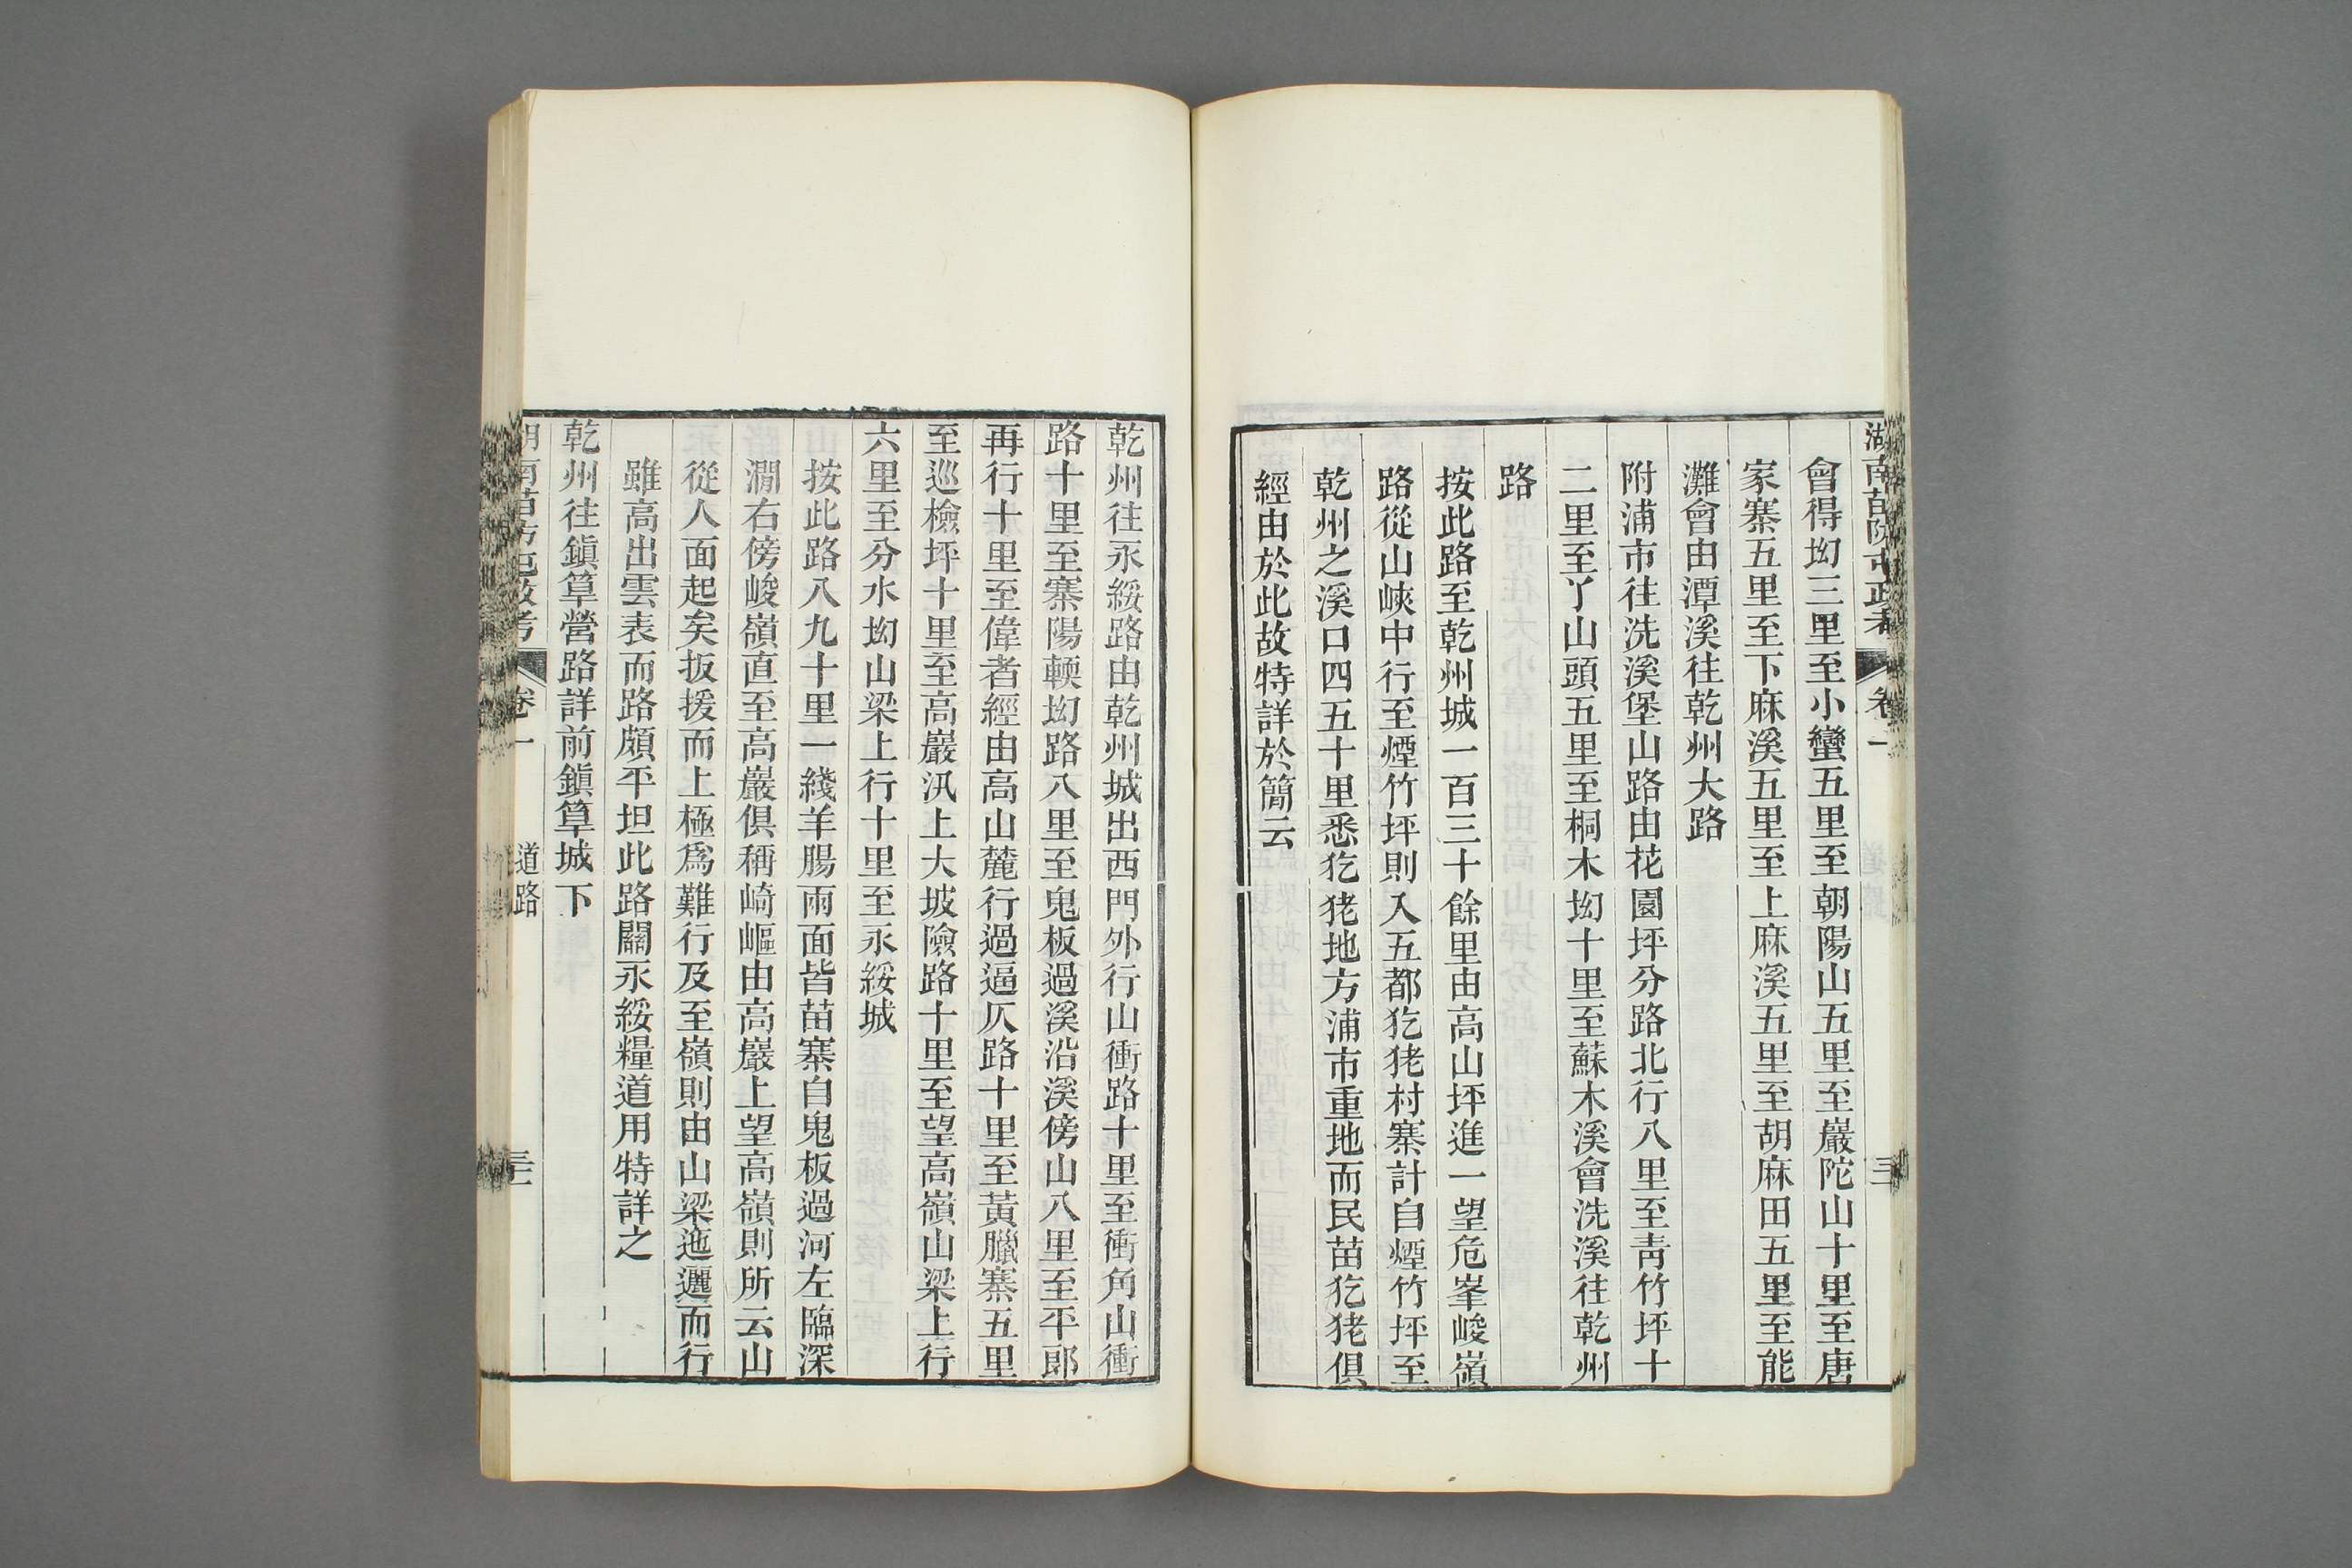 湖南苗防屯政考 卷一
會得坳三里至小蠻五里至朝陽山五里至巖陀山十里至唐
家寨五里至下麻溪五里至上麻溪五里至胡麻田五里至能
灘會由潭溪往乾州大路
附浦市往洗溪堡山路由花園坪分路北行八里至靑竹坪十
二里至丫山頭五里至桐木坳十里至蘇木溪會洗溪往乾州
路
按此路至乾州城一百三十餘里由高山坪進一望危峯峻嶺
路從山峽中行至煙竹坪則入五都犵狫村寨計自煙竹坪至
乾州之溪口四五十里悉犵狫地方浦市重地而民苗犵狫俱
經由於此故特詳於簡云
乾州往永綏路由乾州城出西門外行山衝路十里至衝角山衝
路十里至寨陽輭坳路八里至鬼板過溪沿溪傍山八里至平郎
再行十里至偉者經由高山麓行過逼仄路十里至黃臘寨五里
至巡檢坪十里至高巖汛上大坡險路十里至望高嶺山梁上行
六里至分水坳山梁上行十里至永綏城
按此路八九十里一綫羊腸兩面皆苗寨自鬼板過河左臨深
澗右傍峻嶺直至高巖俱稱崎嶇由高巖上望高嶺則所云山
從人面起矣扳援而上極爲難行及至嶺則由山梁迤邐而行
雖高出雲表而路頗平坦此路關永綏糧道用特詳之
乾州往鎭筸營路詳前鎭筸城下
湖南苗防屯政考 卷一 道路